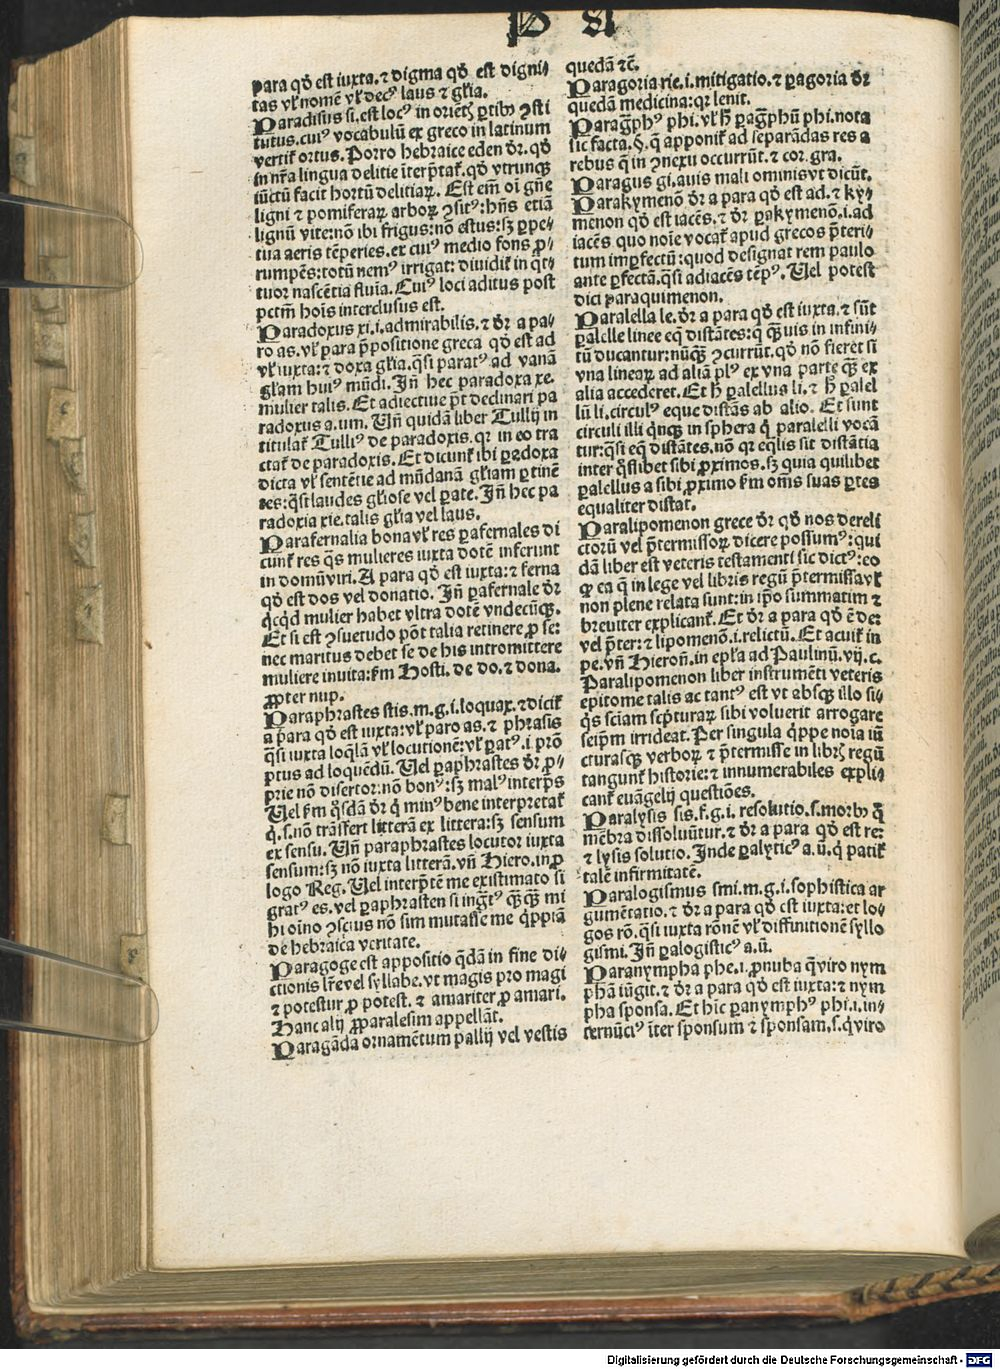 P A
para qđ est iuxta. ⁊ digma qđ est digni⸗
tas vƚ nomē vƚ decꝰ laus ⁊ gƚia.
Paradisus si. est locꝰ in oriētꝫ ꝑtibꝫ ꝯsti
tutus. cuiꝰ vocabulū ex greco in latinum
vertiť ortus. Porro hebraice eden dr̄. qđ
in nr̄a lingua delitie īterp̄tať. qđ vtrunqꝫ
iūctū facit hortū delitiaꝝ. Est em̄ oī gn̄e
ligni ⁊ pomiferaꝝ arboꝝ ꝯsitꝰ: hn̄s etiā
lignū vite: nō ibi frigus: nō estus: sꝫ ꝑpe⸗
tua aeris tēperies. ex cuiꝰ medio fons ꝓ⸗
rumpēs: totū nemꝰ irrigat: diuidiť in q̄t⸗
tuor nascētia fluīa. Cuiꝰ loci aditus post
pctm̄ hoīs interclusus est.
Paradoxus xi. i. admirabilis. ⁊ dr̄ a pa⸗
ro as. vƚ para p̄positione greca qđ est ad
vƚ iuxta: ⁊ doxa gƚia. q̄si paratꝰ ad vanā
gƚam huiꝰ mūdi. Jn̄ hec paradoxa xe.
mulier talis. Et adiectiue pn̄t declinari pa
radoxus a. um. Un̄ quidā liber Tullij in
titulať Tulliꝰ de paradoxis. qr in eo tra
ctať de paradoxis. Et dicunť ibi ꝑadoxa
dicta vƚ sentētie ad mūdanā gƚiam ꝑtinē
tes: q̄si laudes gƚiose vel ꝑate. Jn̄ hec pa
radoxia xie. talis gƚia vel laus.
Parafernalia bona vƚ res ꝑafernales di
cunť res q̄s mulieres iuxta dotē inferunt
in domū viri. A para qđ est iuxta: ⁊ ferna
qđ est dos vel donatio. Jn̄ ꝑafernale dr̄
qͥcqͥd mulier habet vltra dotē vndecūqꝫ.
Et si est ꝯsuetudo pōt talia retinere ꝓ se:
nec maritus debet se de his intromittere
muliere inuita: ẜm Hosti. de do. ⁊ dona.
ꝓpter nup.
Paraphrastes stis. m. g. i. loquax. ⁊ diciť
a para qđ est iuxta: vƚ paro as. ⁊ phrasis
q̄si iuxta loqƚā vƚ locutionē: vƚ ꝑatꝰ. i. prō
ptus ad loquēdū. Uel ꝑaphrastes dr̄. ꝓ⸗
prie nō disertor: nō bonꝰ: sꝫ malꝰ interp̄s
Uel ẜm qͦsdā dr̄ qͥ minꝰ bene interpretať
qͥ. s. nō trāsfert litterā ex littera: sꝫ sensum
ex sensu. Un̄ paraphrastes locutor iuxta
sensum: sꝫ nō iuxta litterā. vn̄ Hiero. in ꝓ
logo Reg. Uel interp̄tē me existimato si
gratꝰ es. vel ꝑaphrasten si ingr̄tꝰ qͣꝫqͣꝫ mi
hi oīno ꝯscius nō sim mutasse me qͥppiā
de hebraica veritate.
Paragoge est appositio qͣdā in fine di⸗
ctionis lr̄e vel syllabe. vt magis pro magi
⁊ potestur ꝓ potest. ⁊ amariter ꝓ amari.
Hanc alij ꝓparalesim appellāt.
Paragāda ornamētum pallij vel vestis
quedā ⁊c̄.
Paragoria rie. i. mitigatio. ⁊ ꝑagoria dr̄
quedā medicina: qr lenit.
Paragr̄phꝰ phi. vƚ hͦ ꝑagr̄phū phi. nota
sic facta. §. q̄ apponiť ad separādas res a
rebus q̄ in ꝯnexu occurrūt. ⁊ cor. gra.
Paragus gi. auis mali ominis vt dicūt.
Parakymenō dr̄ a para qđ est ad. ⁊ ky⸗
menon qđ est iacēs. ⁊ dr̄ ꝑakymenō. i. ad
iacēs quo noīe vocať apud grecos p̄teri⸗
tum imꝑfectū: quod designat rem paulo
ante ꝑfectā. q̄si adiacēs tēpꝰ. Uel potest
dici paraquimenon.
Paralella le. dr̄ a para qđ est iuxta. ⁊ sūt
ꝑalelle linee eqͥ distātes: q̄ qͣꝫuis in infini⸗
tū ducantur: nūqͣꝫ ꝯcurrūt. qđ nō fieret si
vna lineaꝝ ad aliā plꝰ ex vna parte qͣꝫ ex
alia accederet. Et hͦ ꝑalellus li. ⁊ hͦ ꝑalel
lū li. circulꝰ eque distās ab alio. Et sunt
circuli illi qͥnqꝫ in sphera qͥ paralelli vocā
tur: q̄si eqͥ distātes. nō qr eqͣlis sit distātia
inter qͦslibet sibi ꝓximos. sꝫ quia quilibet
ꝑalellus a sibi ꝓximo ẜm oēs suas ꝑtes
equaliter distat.
Paralipomenon grece dr̄ qđ nos dereli
ctorū vel p̄termissoꝝ dicere possumꝰ: qui
dā liber est veteris testamenti sic dictꝰ: eo
ꝙ ea q̄ in lege vel libris regū p̄termissa vƚ
non plene relata sunt: in ip̄o summatim ⁊
breuiter explicanť. Et dr̄ a para qđ ē de:
vel p̄ter: ⁊ lipomenō. i. relictū. Et acuiť in
pe. vn̄ Hieron̄. in epƚa ad Paulinū. vij. c.
Paralipomenon liber instrumēti veteris
epitome talis ac tantꝰ est vt absqꝫ illo si⸗
qͥs sciam scpturaꝝ sibi voluerit arrogare
seipm̄ irrideat. Per singula qͥppe noīa iū
cturasqꝫ verboꝝ ⁊ p̄termisse in librꝫ regū
tangunť historie: ⁊ innumerabiles expli⸗
canť euāgelij questiōes.
Paralysis sis. f. g. i. resolutio. s. morbꝫ q̄
mēbra dissoluūtur. ⁊ dr̄ a para qđ est re:
⁊ lysis solutio. Jnde ꝑalyticꝰ a. ū. qͥ patiť
talē infirmitatē.
Paralogismus smi. m. g. i. sophistica ar
gumētatio. ⁊ dr̄ a para qđ est iuxta: et lo⸗
gos rō. q̄si iuxta rōnē vƚ diffinitionē syllo
gismi. Jn̄ ꝑalogisticꝰ a. ū.
Paranympha phe. i. ꝓnuba q̄ viro nym
phā iūgit. ⁊ dr̄ a para qđ est iuxta: ⁊ nym
pha sponsa. Et hīc ꝑanymphꝰ phi. i. in⸗
ternūciꝰ īter sponsum ⁊ sponsam. s. qͥ viro
Digitalisierung gefördert durch die Deutsche Forschungsgemeinschaft - DFG